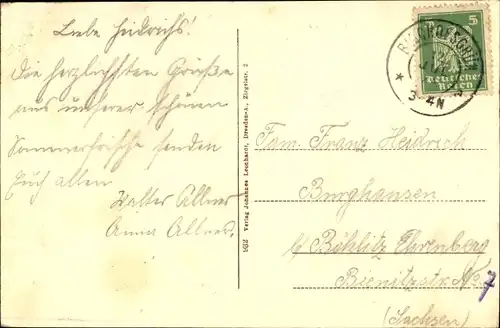 Liebe Heidrichs!
Die herzlichsten Grüße
aus unserer schönen
Sommerfrische senden
Euch allen
Walter Allner
Anna Allner.
162 Verlag Johannes Leonhardt, Dresden-A., Ziegelstr. 2
5
Deutsches
Reich
3-4N
Fam. Franz Heidrich
Burghausen
b/ Böhlitz Ehrenberg
Bienitzstr. No 7
(Sachsen)